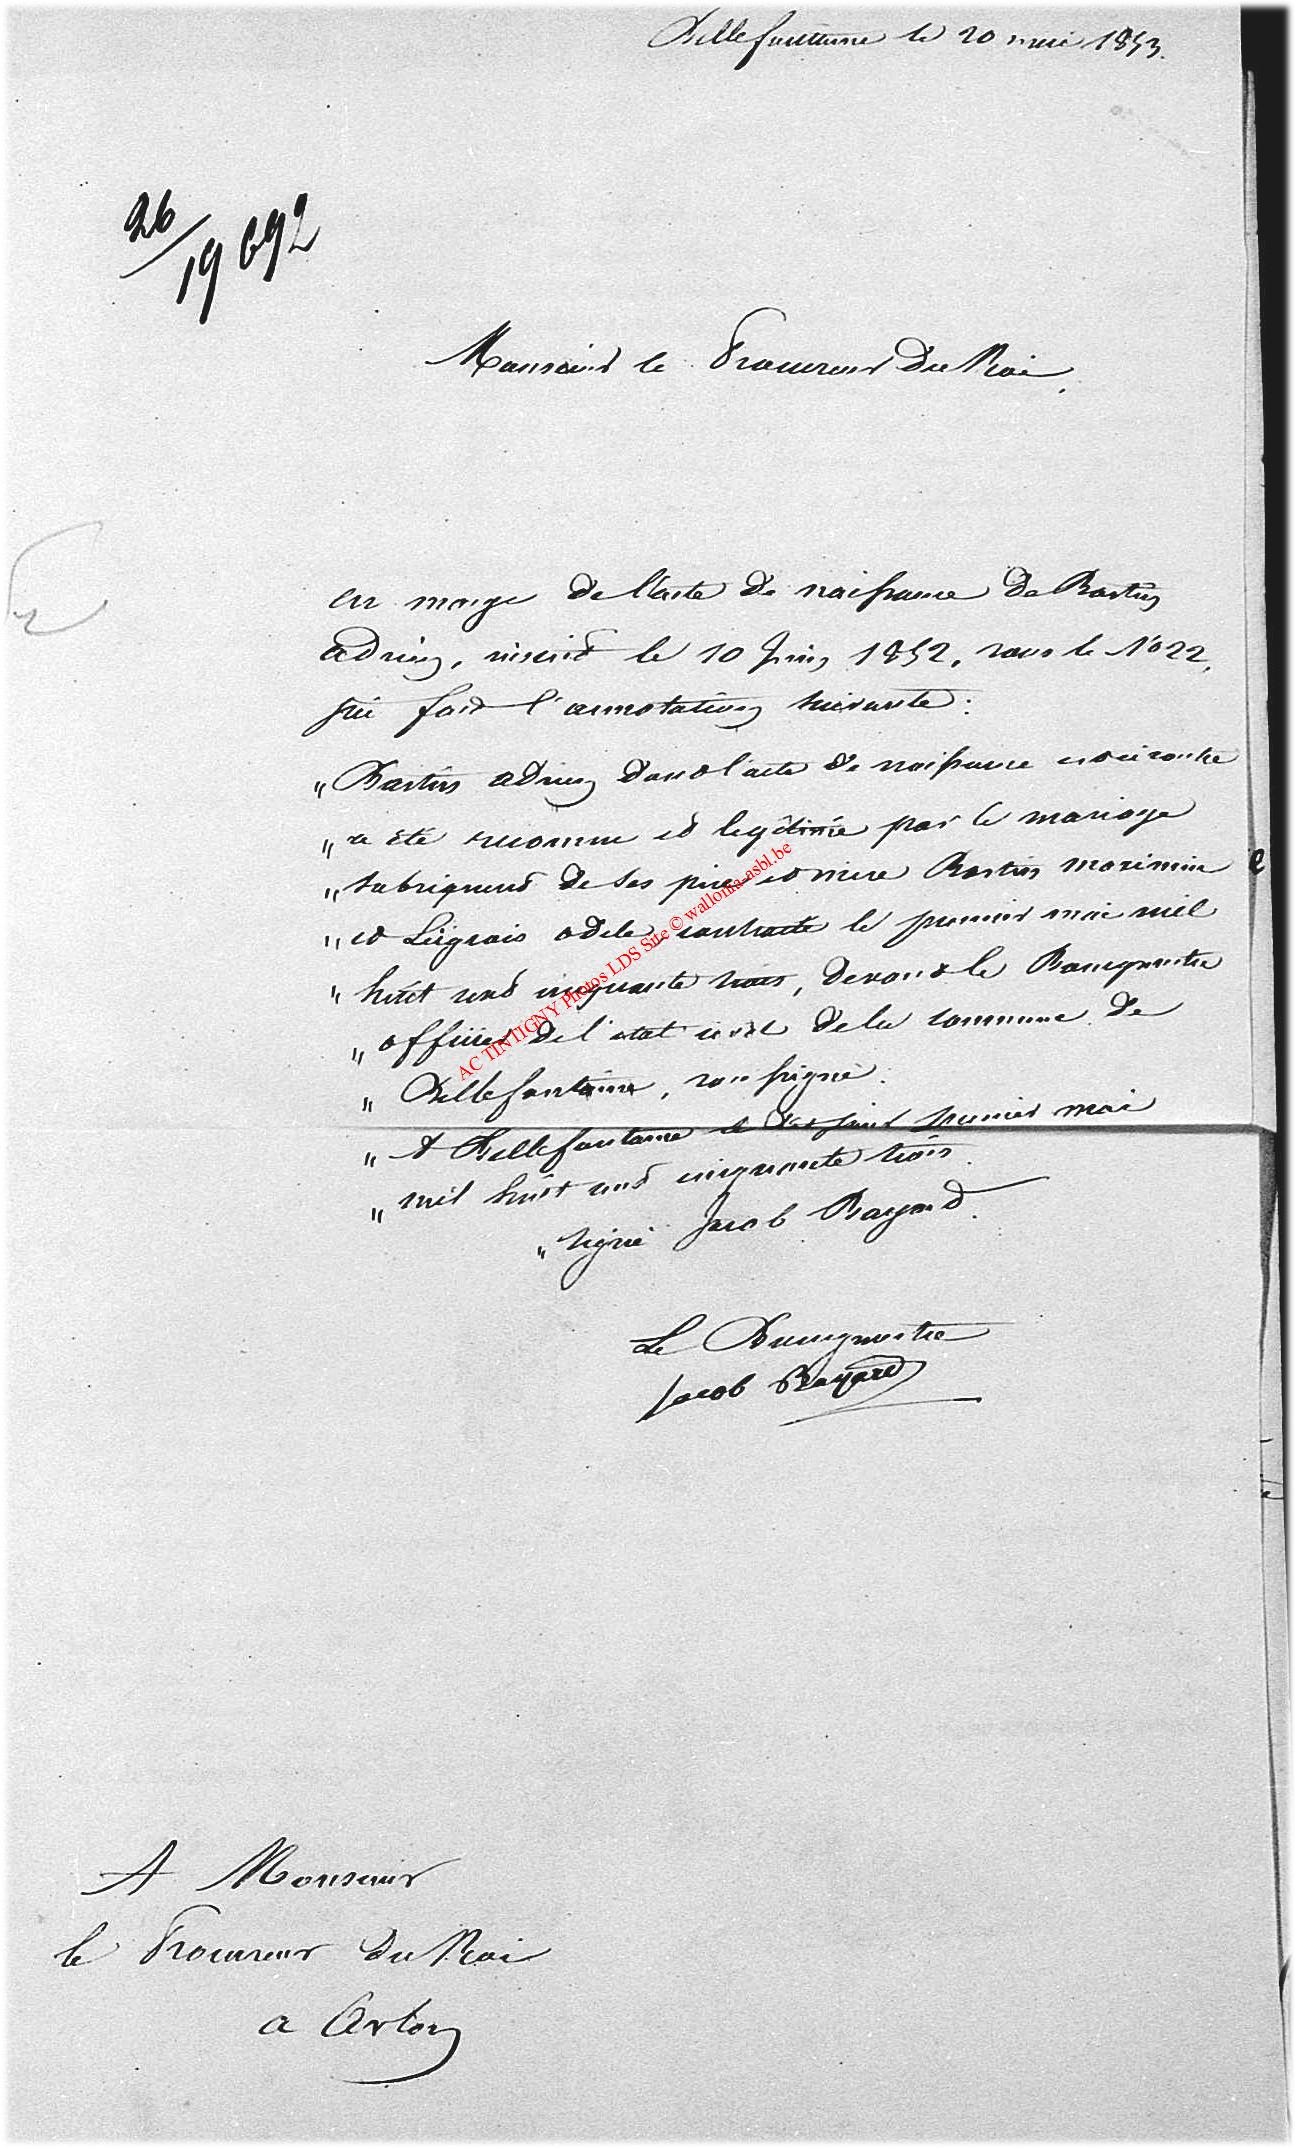 Bellefontaine le 20 mai 1853.
26/19692
Monsieur le Procureur du Roi,
en marge de l'acte de naissance de Bastin
adrien, inscrit le 10 Juin 1852, sous le N° 22,
j'ai fait l'annotation suivante :
" Bastin adrien dans l'acte de naissance ci contre
" a été reconnu et légitimé par le mariage
" subséquent de ses père et mère Bastin maximin
" et Liégeois adele, contracté le premier mai mil
" huit cent cinquante trois, devant le Bourgmestre
" officier de l'état civil de la commune de
" Bellefontaine, soussigné.
" A Bellefontaine le premier mai
" mil huit cent cinquante trois.
" signé Jacob Bayard.
Le Bourgmestre
Jacob Bayard
A Monsieur
le Procureur du Roi
a Arlon
AC TINTIGNY Photos LDS Site © wallonia-asbl.be